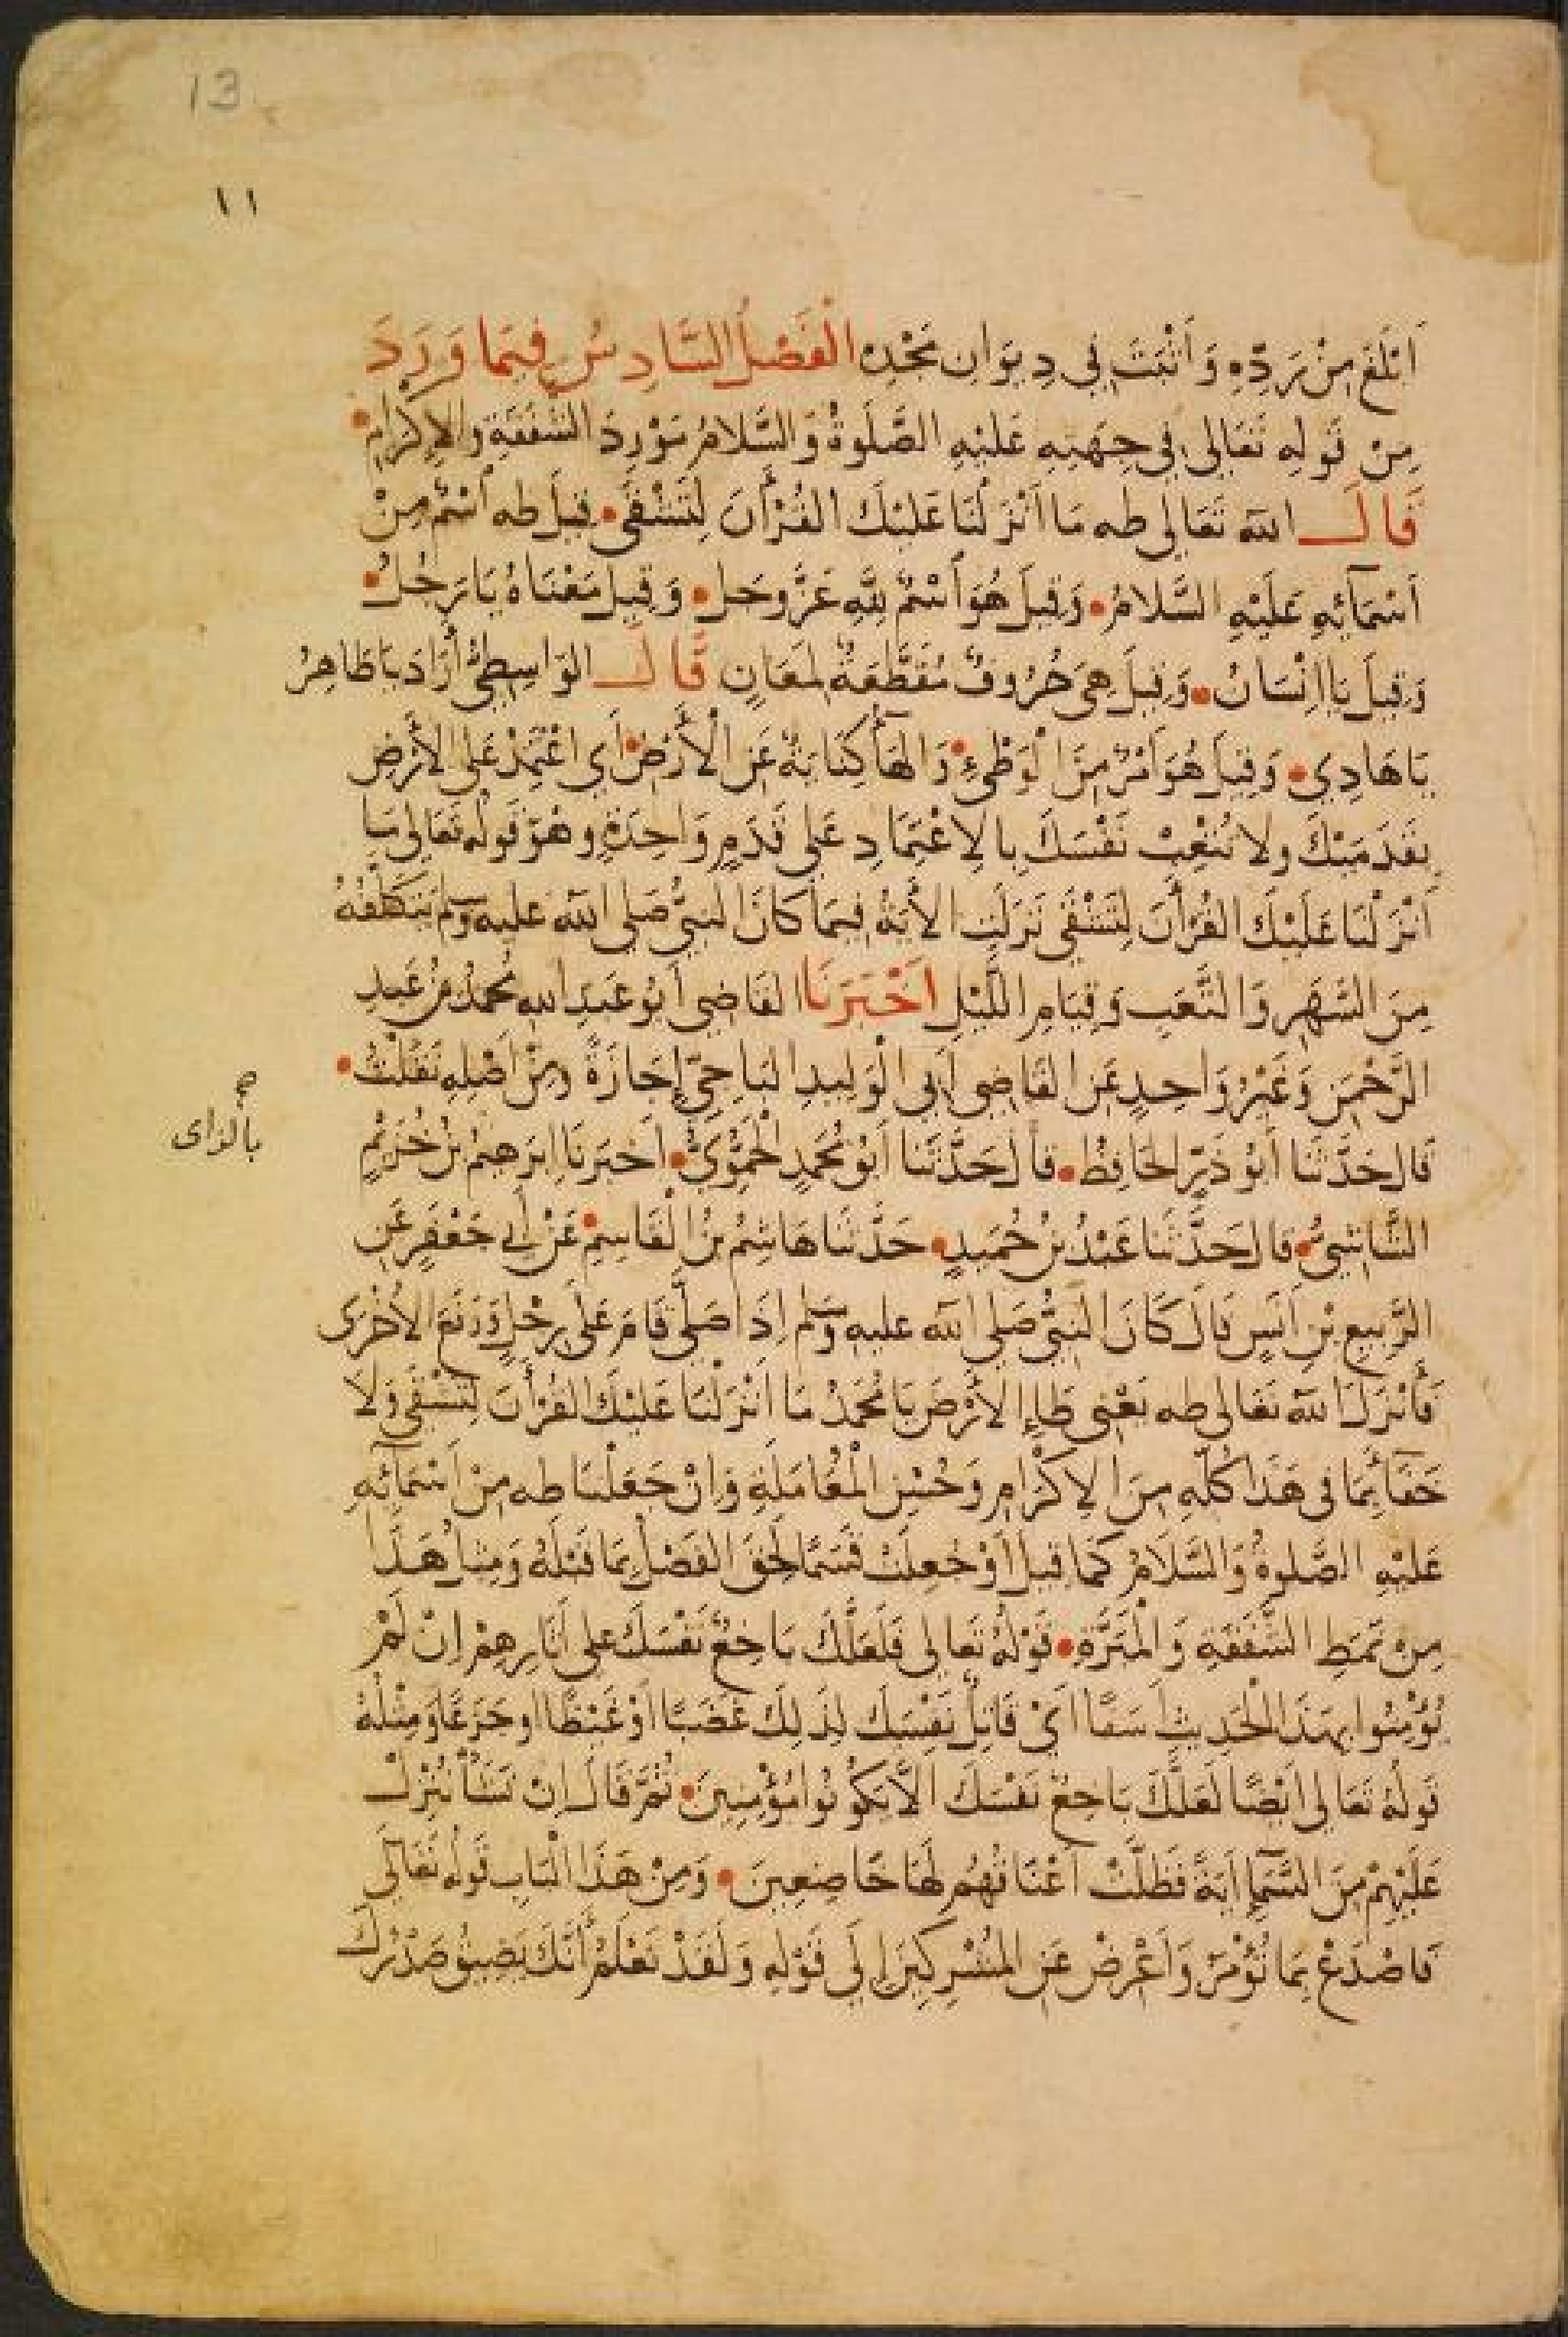 13
١١
اَبْلَغَ مِنْ رَدِّهِ وَاَثْبَتَ فِي دِيوَانِ مَجْدِهِ الْفَصْلُ السَّادِسُ فِيمَا وَرَدَ
مِنْ قَوْلِهِ تَعَالى فِي جِهَتِهِ عَلَيْهِ الصَّلَوةُ وَالسَّلَامُ مَوْرِدَ الشَّفَقَةِ وَالإِكْرَامِ
قَالَ الله تَعَالى طه مَا اَنْزَلْنَا عَلَيْكَ الْقُرْأَنَ لِتَشْقَى قِيلَ طه اسْمٌ مِنْ
اَسْمَآئِهِ عَلَيْهِ السَّلَامُ وَقِيلَ هُوَ اَسْمٌ لِلَّهِ عَزَّ وجَل وَقِيلَ مَعْنَاهُ يَا رَجُلُ
وَقِيلَ يَا اِنْسَانُ وَقِيلَ هِيَ حُرُوفٌ مُقَطَّعَةٌ لِمَعَانٍ قَالَ الوَاسِطِيُّ أَرَادَ يَا طَاهِرُ
يَا هَادِي وَقِيلَ هُوَ اَمْرٌ مِنَ الْوَطْيءِ وَالهَآ كِنَايَةٌ عَنِ الْأَرْضِ اَي اعْتَمِدْ عَلَى الأَرْضِ
بِقَدَمَيْكَ ولا تُتْعِبْ نَفْسَكَ بِالِاعْتِمَادِ عَلَى قَدَمٍ وَاحِدَةٍ وهُوَ قَولُه تَعَالى مَا
اَنْزَلْنَا عَلَيْكَ القُرْأَنَ لِتَشْقَى نَزَلَتِ الأَيَةُ فِيمَا كَانَ النبيُّ صَلى الله عليه وسلم يَتَكَلَّفُهُ
مِنَ السَّهَرِ وَالتَّعَبِ وَقِيَامِ اللَّيْلِ اَخْبَرَنَا القَاضِي أَبُو عَبْدِ اللهِ مُحَمَّدُ بْنُ عَبْدِ
الرَّحْمَنِ وَغَيْرُ وَاحِدٍ عَنِ القَاضِي اَبِي الْوَلِيدِ البَاجِيّ إِجَازَةً وَمِنْ اَصْلِهِ نَقَلْتُ
قَالَ حَدَّثَنَا اَبُو ذَرٍّ الحَافِظُ قَالَ حَدَّثَنَا أَبُو مُحَمَّدٍ الْحَمَّوِيُّ اَخْبَرَنَا اِبْرَهِيمُ بْنُ خُزَيْمٍ
بالزاى
الشَّاشِيُّ قَالَ حَدَّثَنَا عَبْدُ بْنُ حُمَيدٍ حَدَّثَنَا هَاشِمُ بْنُ الْقَاسِمِ عَنْ اَبِي جَعْفَرٍ عَنِ
الرَّبِيعِ بْنِ اَنَسٍ قَالَ كَانَ النَّبيُّ صَلى الله عليه وسلم اِذَا صَلَّى قَامَ عَلَى رِجْلٍ وَرَفَعَ الأُخْرَى
فَأَنْزَلَ اللهُ تَعَالى طه يَعْنِي طَاِ الأَرْضَ يَا مُحَمَّدُ مَا اَنْزَلْنَا عَلَيْكَ القُرْأَنَ لِتَشْقَى وَلَا
خَفَآ بِمَا فِى هَذَا كُلِّهِ مِنَ الإِكْرَامِ وَحُسْنِ الْمُعَامَلَةِ وَاِنْ جَعَلْنَا طه مِنْ اَسْمَآئِهِ
عَلَيْهِ الصَّلوةُ وَالسَّلَامُ كَمَا قِيلَ أَوْ جُعِلَتْ قَسَمًا لَحِقَ الفَصْلُ بِمَا قَبْلَهُ وَمِثْلُ هَذَا
مِنْ نَمَطِ الشَّفَقَةِ وَالْمَبَرَّةِ قَوْلُهُ تَعَالى فَلَعَلَّكَ بَاخِعٌ نَفْسَكَ عَلى أَثَارِهِمْ اِنْ لَمْ
يُؤْمِنُوا بِهَذَا الْحَدِيثِ اَسَفًا اَيْ قَاتِلٌ نَفْسَكَ لِذَلِكَ غَضَبًا اَوْ غَيْظًا اَو جَزَعًا وَمِثْلُهُ
قَولُهُ تَعَالى اَيْضًا لَعَلَّكَ بَاخِعٌ نَفْسَكَ اَلَّا يَكُونُوا مُؤْمِنِينَ ثُمَّ قَالَ اِنْ نَشَأْ نُنَزِّلْ
عَلَيْهِمْ مِنَ السَّمَآءِ اَيَةً فَظَلَّتْ اَعْنَاقُهُمْ لَهَا خَاضِعِينَ وَمِنْ هَذَا الْبَابِ قَولُه تَعَالَى
فَاصْدَعْ بِمَا تُؤْمَرُ وَاَعْرِضْ عَنِ المُشْرِكِينَ اِلَى قَوْلِهِ وَلَقَدْ نَعْلَمُ أَنَّكَ يَضِيقُ صَدْرُكَ